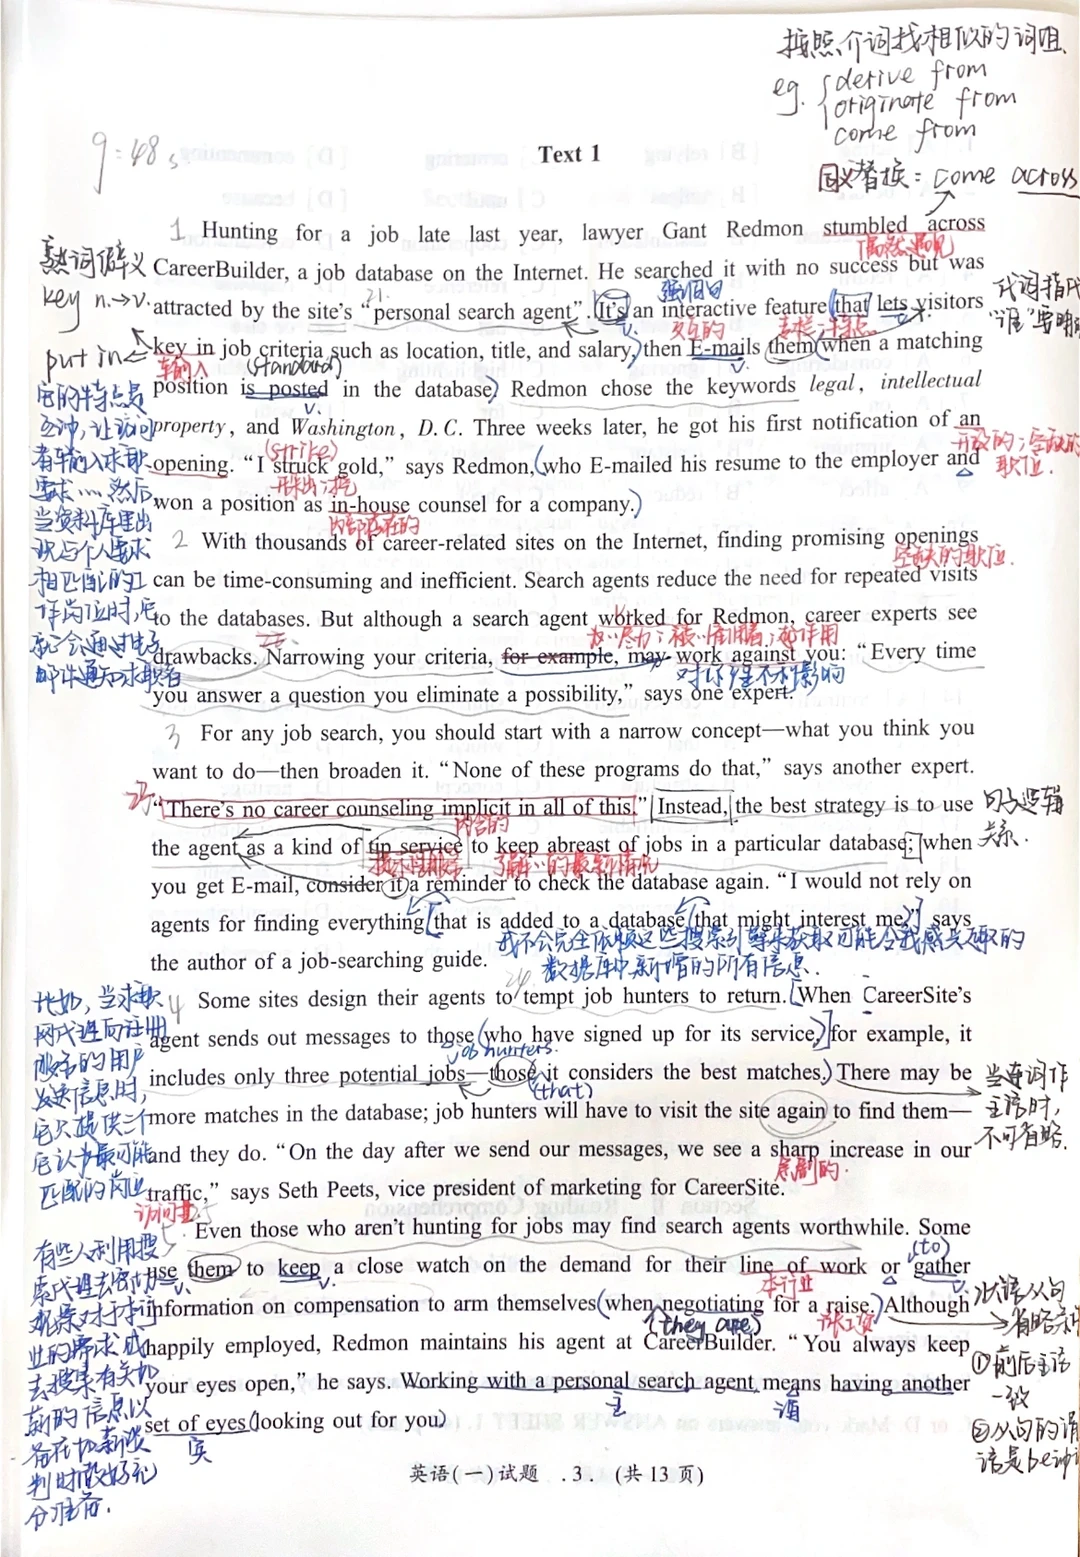 按照介词找相似的词组、
eg. { derive from
originate from
come from
9:48
Text 1
同义替换: come across
1 Hunting for a job late last year, lawyer Gant Redmon stumbled across
偶然遇见
熟词僻义
CareerBuilder, a job database on the Internet. He searched it with no success but was
强调句
代词指代
key n.→v.
21.
attracted by the site's “personal search agent”. It's an interactive feature that lets visitors
"谁"要明
交互的
put in
key in job criteria such as location, title, and salary, then E-mails them when a matching
输入 (standard)
position is posted in the database. Redmon chose the keywords legal, intellectual
v.
它的特点是
互动,让访问
property, and Washington, D. C. Three weeks later, he got his first notification of an
(strike)
者输入求职
opening. “I struck gold,” says Redmon, who E-mailed his resume to the employer and
职位.
要求…然后
won a position as in-house counsel for a company.
当资料库里出
2 With thousands of career-related sites on the Internet, finding promising openings
空缺的职位.
现与个人要求
相匹配的工
can be time-consuming and inefficient. Search agents reduce the need for repeated visits
作岗位时,它
to the databases. But although a search agent worked for Redmon, career experts see
22.
就会通过电子
drawbacks. Narrowing your criteria, for example, may work against you: “Every time
邮件通知求职者
对你产生不利影响
you answer a question you eliminate a possibility,” says one expert.
3 For any job search, you should start with a narrow concept—what you think you
want to do—then broaden it. “None of these programs do that,” says another expert.
23.
“There's no career counseling implicit in all of this.” Instead, the best strategy is to use
句子逻辑
关系.
内含的
the agent as a kind of tip service to keep abreast of jobs in a particular database; when
了解…的最新情况
you get E-mail, consider it a reminder to check the database again. “I would not rely on
agents for finding everything that is added to a database that might interest me,” says
我不会完全依赖这些搜索引擎来获取可能令我感兴趣的
the author of a job-searching guide.
数据库中新增的所有信息.
24.
比如,当求职
4 Some sites design their agents to tempt job hunters to return. When CareerSite's
网代理向注册
agent sends out messages to those who have signed up for its service, for example, it
服务的用户
job hunters.
includes only three potential jobs—those it considers the best matches. There may be
(that)
当连词作
主语时,
不可省略.
发送信息时,
more matches in the database; job hunters will have to visit the site again to find them—
它只提供三个
它认为最可能
and they do. “On the day after we send our messages, we see a sharp increase in our
急剧的.
匹配的岗位
traffic,” says Seth Peets, vice president of marketing for CareerSite.
访问量
25
5. Even those who aren't hunting for jobs may find search agents worthwhile. Some
有些人利用搜
(to)
索代理去密切
use them to keep a close watch on the demand for their line of work or gather
v.
本行业
information on compensation to arm themselves when negotiating for a raise. Although
(they are)
涨工资
状语从句
happily employed, Redmon maintains his agent at CareerBuilder. “You always keep
①前后主语
一致
去搜集有关加
your eyes open,” he says. Working with a personal search agent means having another
主
谓
薪的信息以
②从句的谓
语是be动
set of eyes looking out for you.
宾
备在加薪谈
判时做好充
分准备.
英语(一)试题 .3. (共 13 页)